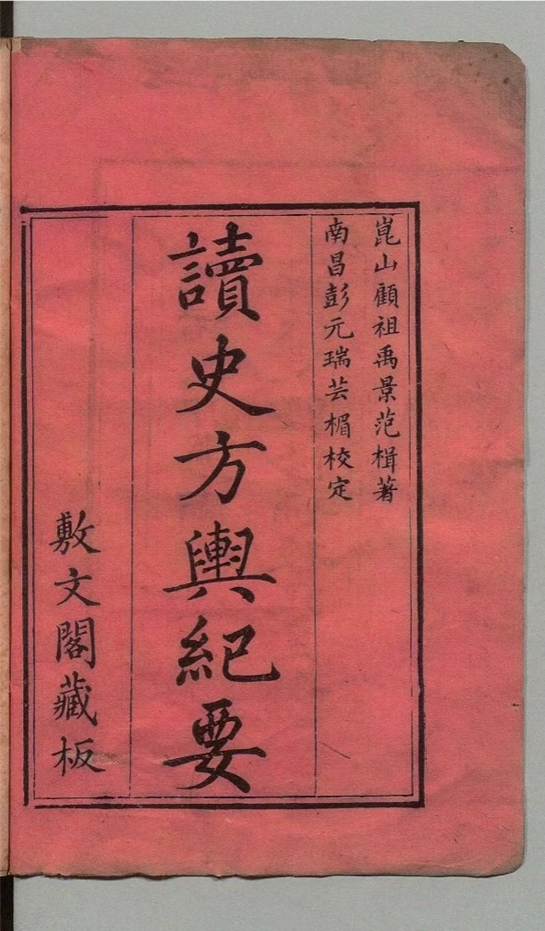 崑山顧祖禹景范楫著
南昌彭元瑞芸楣校定
讀史方輿紀要
敷文閣藏板